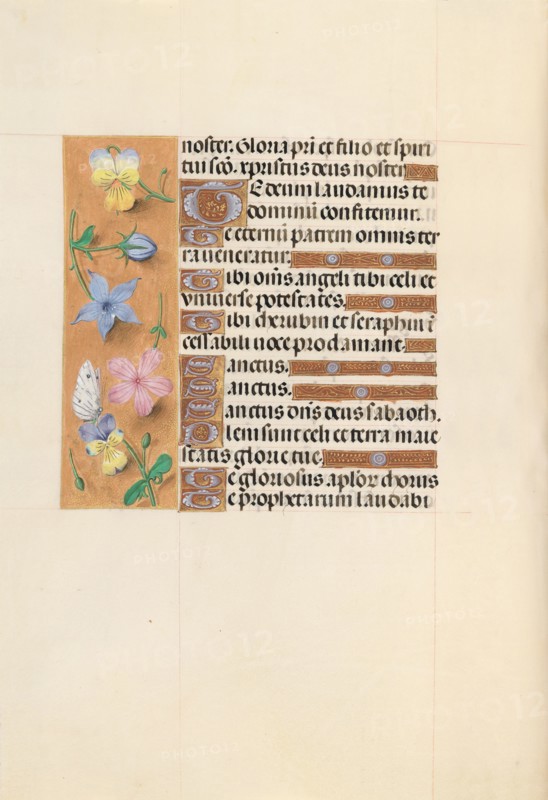 noster. Gloria pr̄i et filio et spiri
tui sc̄o. xpristus deus noster
Te deum laudamus te
dominū confitemur.
Te eternū patrem omnis ter
ra ueneratur.
Tibi om̄s angeli tibi celi et
vniuerse potestates.
Tibi cherubin et seraphin ī
cessabili uoce proclamant.
Sanctus.
Sanctus.
Sanctus dn̄s deus sabaoth.
Pleni sunt celi et terra maie
statis glorie tue.
Te gloriosus apl̄oꝝ chorus
Te prophetarum laudabi